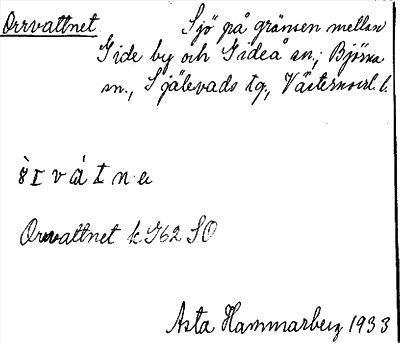 Orrvattnet. Sjö på gränsen mellan
Gide by och Gideå sn; Björna
sn., Själevads tg., Västernorrl. l.
Orrvattnet k J62 SO
Asta Hammarberg 1933